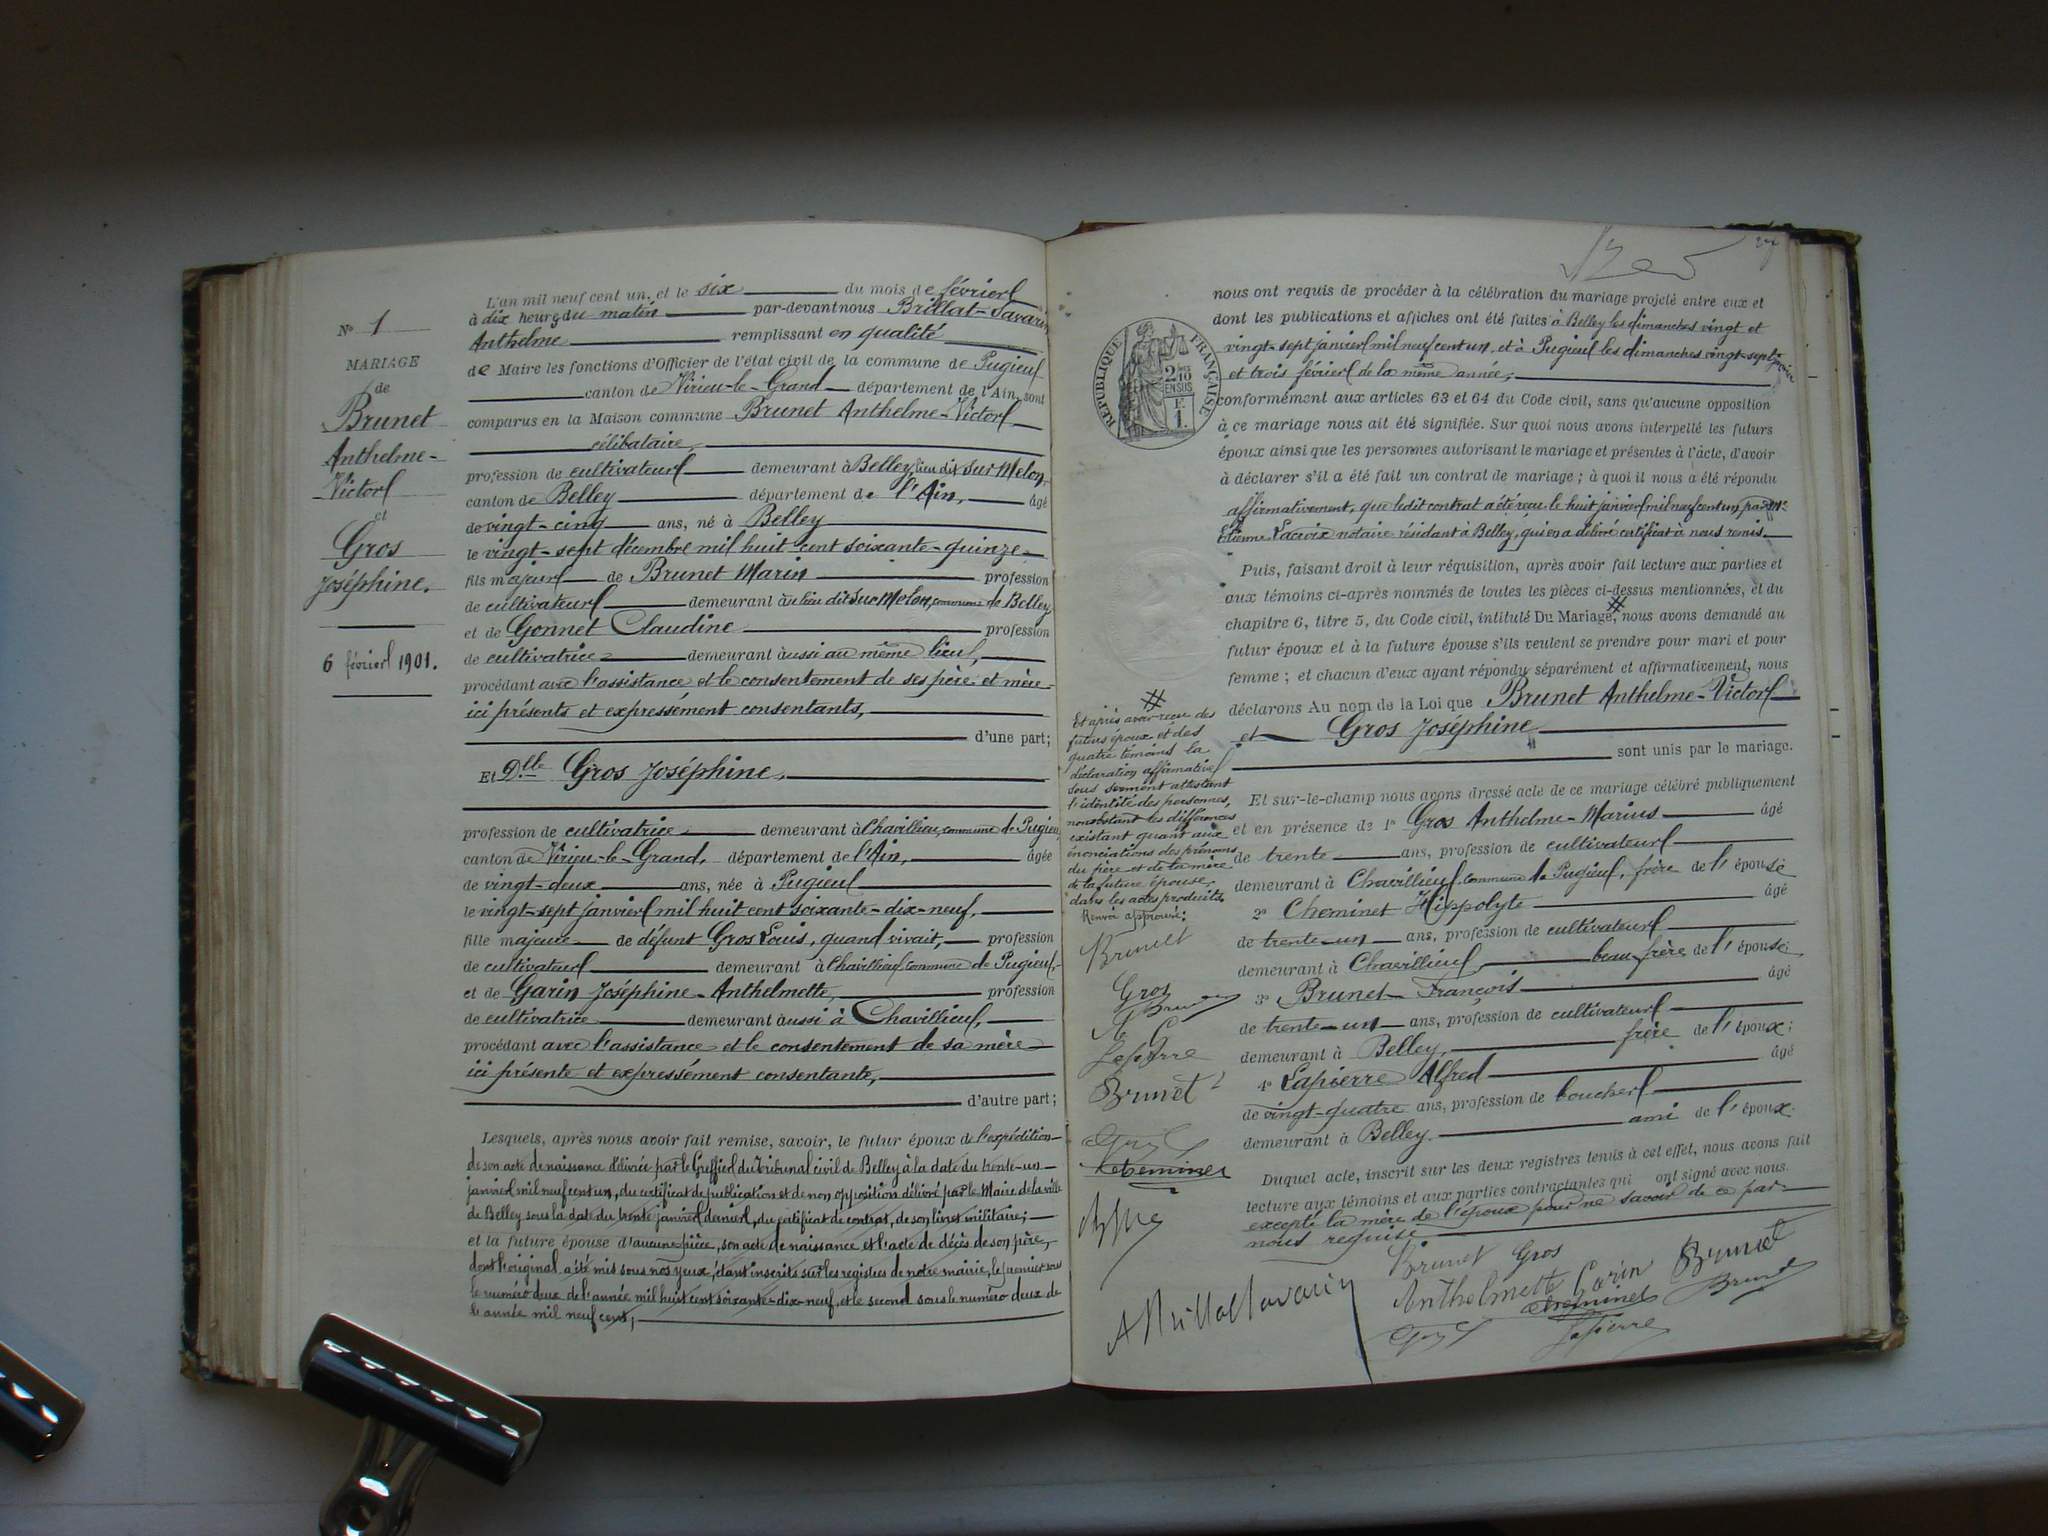 N° 1
MARIAGE
de
Brunet
Anthelme-
Victor
et
Gros
Joséphine.
6 février 1901.
L'an mil neuf cent un, et le six du mois de février
à dix heures du matin par-devant nous Brillat-Savarin
Anthelme remplissant en qualité
de Maire les fonctions d'Officier de l'état civil de la commune de Pugieu
canton de Virieu-le-Grand département de l'Ain, sont
comparus en la Maison commune Brunet Anthelme-Victor
célibataire,
profession de cultivateur demeurant à Belley, lieu dit sur Melon,
canton de Belley département de l'Ain, âgé
de vingt-cinq ans, né à Belley
le vingt-sept décembre mil huit cent soixante-quinze
fils majeur de Brunet Marin profession
de cultivateur demeurant au lieu dit sur Melon, commune de Belley
et de Gonnet Claudine profession
de cultivatrice demeurant aussi au même lieu,
procédant avec l'assistance et le consentement de ses père et mère
ici présents et expressément consentants,
d'une part;
Et Dlle Gros Joséphine,
profession de cultivatrice demeurant à Chavillieu, commune de Pugieu,
canton de Virieu-le-Grand, département de l'Ain, âgée
de vingt-deux ans, née à Pugieu
le vingt-sept janvier mil huit cent soixante-dix-neuf,
fille majeure de défunt Gros Louis, quand vivait, profession
de cultivateur demeurant à Chavillieu, commune de Pugieu,
et de Garin Joséphine-Anthelmette, profession
de cultivatrice demeurant aussi à Chavillieu,
procédant avec l'assistance et le consentement de sa mère
ici présente et expressément consentante,
d'autre part;
Lesquels, après nous avoir fait remise, savoir, le futur époux de l'expédition
de son acte de naissance délivrée par le Greffier du Tribunal civil de Belley à la date du trente-un
janvier mil neuf cent un, du certificat de publication et de non opposition délivré par le Maire de la ville
de Belley sous la date du trente janvier dernier, du certificat de contrat, de son livret militaire;
et la future épouse d'aucune pièce, son acte de naissance et l'acte de décès de son père,
dont l'original a été mis sous nos yeux, étant inscrits sur les registres de notre mairie, le premier sous
le numéro deux de l'année mil huit cent soixante-dix-neuf, et le second sous le numéro deux de
l'année mil neuf cent,
27
RÉPUBLIQUE FRANÇAISE
2/10
EN SUS
nous ont requis de procéder à la célébration du mariage projeté entre eux et
dont les publications et affiches ont été faites à Belley les dimanches vingt et
vingt-sept janvier mil neuf cent un, et à Pugieu les dimanches vingt-sept janvier
et trois février de la même année;
conformément aux articles 63 et 64 du Code civil, sans qu'aucune opposition
à ce mariage nous ait été signifiée. Sur quoi nous avons interpellé les futurs
époux ainsi que les personnes autorisant le mariage et présentes à l'acte, d'avoir
à déclarer s'il a été fait un contrat de mariage; à quoi il nous a été répondu
affirmativement, que ledit contrat a été reçu le huit janvier mil neuf cent un par Me
Etienne Lacroix notaire résidant à Belley, qui en a délivré certificat à nous remis.
Puis, faisant droit à leur réquisition, après avoir fait lecture aux parties et
aux témoins ci-après nommés de toutes les pièces ci-dessus mentionnées, et du
chapitre 6, titre 5, du Code civil, intitulé Du Mariage, # nous avons demandé au
futur époux et à la future épouse s'ils veulent se prendre pour mari et pour
femme; et chacun d'eux ayant répondu séparément et affirmativement, nous
déclarons Au nom de la Loi que Brunet Anthelme-Victor
et Gros Joséphine
sont unis par le mariage.
Et sur-le-champ nous avons dressé acte de ce mariage célébré publiquement
et en présence de 1° Gros Anthelme-Marius âgé
de trente ans, profession de cultivateur
demeurant à Chavillieu commune de Pugieu, frère de l'épouse
2° Cheminet Hippolyte âgé
de trente-un ans, profession de cultivateur
demeurant à Chavillieu, beau-frère de l'épouse;
3° Brunet François âgé
de trente-un ans, profession de cultivateur
demeurant à Belley, frère de l'époux;
4° Lapierre Alfred âgé
de vingt-quatre ans, profession de boucher
demeurant à Belley. ami de l'époux.
Duquel acte, inscrit sur les deux registres tenus à cet effet, nous avons fait
lecture aux témoins et aux parties contractantes qui ont signé avec nous.
excepté la mère de l'époux pour ne savoir de ce par
nous requise
Brunet Gros Brunet
Anthelmette Garin Brunet
Cheminet
Lapierre
#
Et après avoir reçu des
futurs époux et des
quatre témoins la
déclaration affirmative
sous serment attestant
l'identité des personnes,
nonobstant les différences
existant quant aux
énonciations des prénoms
du père et de la mère
de la future épouse,
dans les actes produits.
Renvoi approuvé:
Brunet
Gros
Brunet
A. G
Lapierre
Brunet
Cheminet
A Brillat Savarin